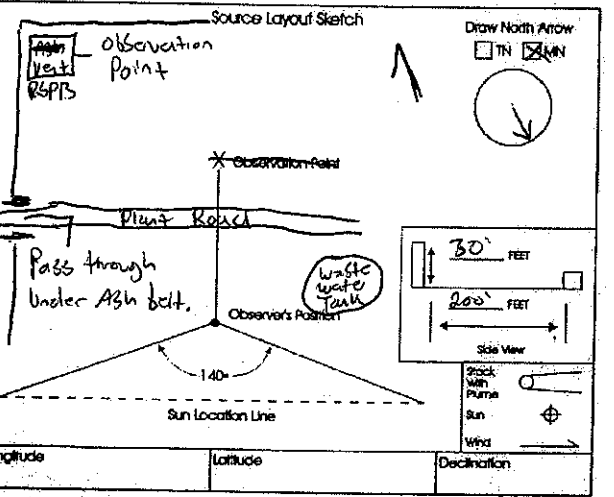 Source Layout Sketch
Draw North Arrow
TN MN
Ash
Vent
RSPPB
Observation
Point
Observation Point
Plant Road
Pass through
under Ash belt.
Waste
water
Tank
30' FEET
200' FEET
Side View
Observer's Position
140°
Sun Location Line
Stack
With
Plume
Sun
Wind
ngitude
Latitude
Declination